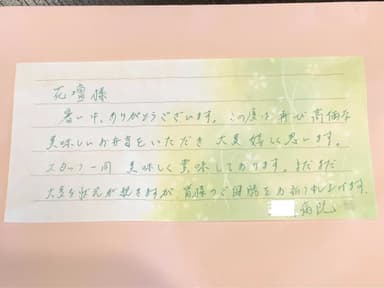 花壇様
暑い中、ありがとうございます。この度は再び高価な
美味しいお弁当をいただき大変嬉しく思います。
スタッフ一同 美味しく賞味しております。まだまだ
大変な状況が続きますが 皆様のご健勝をお祈り申し上げます。
病院